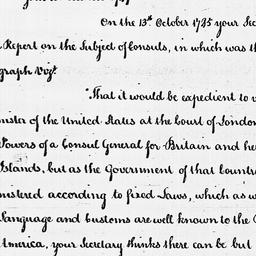 On the 13th October 1785 your Sec
Report on the Subject of Consuls, in which was th
graph Vizt
That it would be expedient to v
nister of the United States at the Court of London
Powers of a Consul General for Britain and he
Islands, but as the Government of that Countr
nistered according to fixed Laws, which as w
Language and Customs are well known to the C
America, your Secretary thinks there can be but